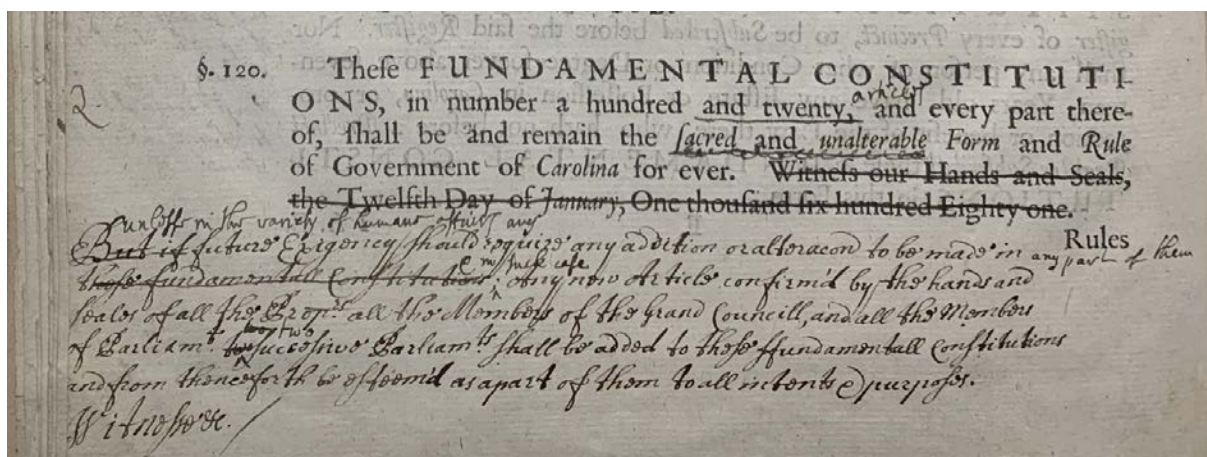 §. 120. Theſe FUNDAMENTAL CONSTITUTI-
articles
2 ONS, in number a hundred and twenty, and every part there-
of, ſhall be and remain the ſacred and unalterable Form and Rule
of Government of Carolina for ever. Witneſs our Hands and Seals,
the Twelfth Day of January, One thouſand ſix hundred Eighty one.
Rules
unlesse in the variety of humane affaires any
But if future Exigency should require any addition or alteracon to be made in any part of them
& in such case
those fundamentall Constitutions; Any new Article confirm'd by the hands and
seales of all the Proprs all the Members of the Grand Councill, and all the Members
two
of Parliamt successive Parliamts shall be added to these ffundamentall Constitutions
and from thenceforth be esteem'd as a part of them to all intents & purposes.
Witnesse &c.